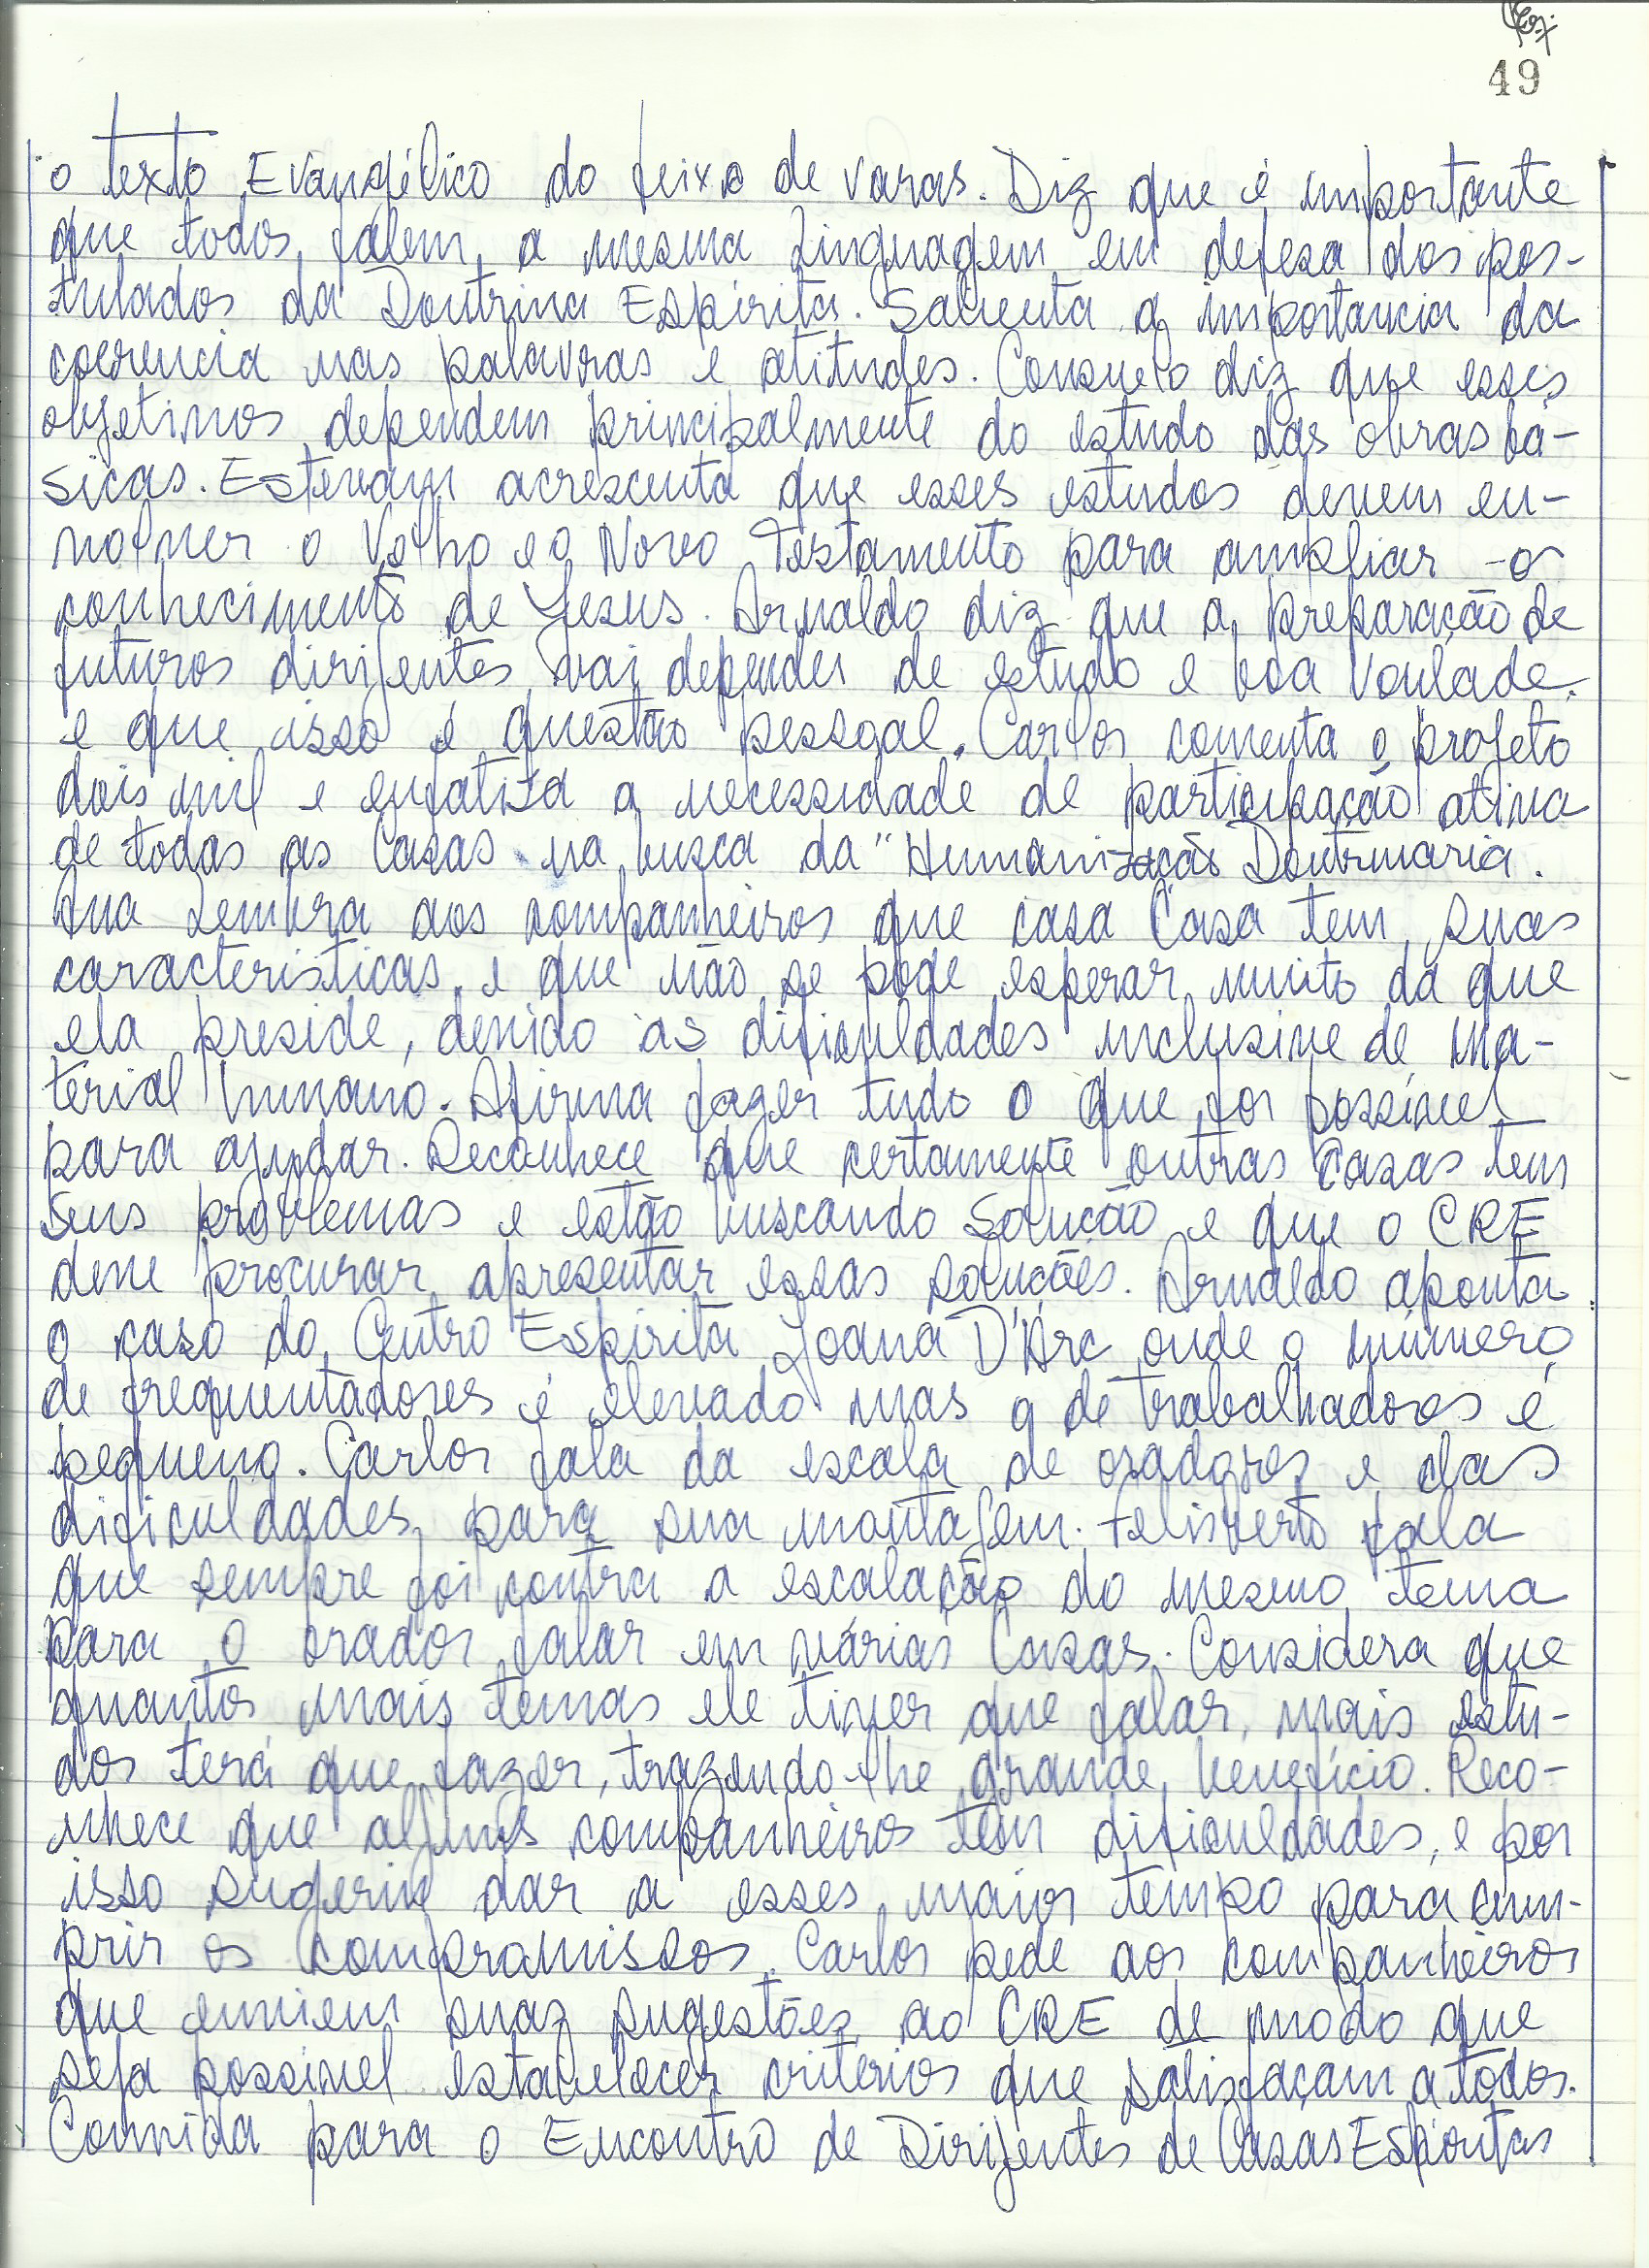 49
o texto Evangélico do feixe de varas. Diz que é importante
que todos falem a mesma linguagem em defesa dos pos-
tulados da Doutrina Espírita. Salienta a importancia da
coerencia nas palavras e atitudes. Consuelo diz que esses
objetivos dependem principalmente do estudo das obras bá-
sicas. Estevam acrescenta que esses estudos devem en-
volver o Velho e o Novo Testamento para ampliar o
conhecimento de Jesus. Arnaldo diz que a preparação de
futuros dirijentes vai depender de estudo e boa vontade.
e que isso é questão pessoal. Carlos comenta o projeto
dois mil e enfatiza a necessidade de participação ativa
de todas as Casas na busca da "Humanização Doutrinaria.
lembra aos companheiros que casa Casa tem suas
caracteristicas e que não se pode esperar muito da que
ela preside, devido as dificuldades inclusive de ma-
terial humano. Afirma fazer tudo o que for possível
para ajudar. Reconhece que certamente outras Casas tem
seus problemas e estão buscando solução e que o CRE
deve procurar apresentar essas soluções. Arnaldo aponta
o caso do Centro Espírita Joana D'Arc onde o número
de frequentadores é elevado mas o de trabalhadores é
pequeno. Carlos fala da escala de oradores e das
dificuldades para sua montagem. Felisberto fala
que sempre foi contra a escalação do mesmo tema
para o orador falar em várias Casas. Considera que
quantos mais temas ele tiver que falar, mais estu-
dos terá que fazer, trazendo-lhe grande benefício. Reco-
nhece que alguns companheiros tem dificuldades, e por
isso sugeriu dar a esses maior tempo para cum-
prir os compromissos. Carlos pede aos companheiros
que enviem suas sugestões ao CRE de modo que
seja possivel estabelecer criterios que satisfaçam a todos.
Convida para o Encontro de Dirijentes de Casas Espiritas